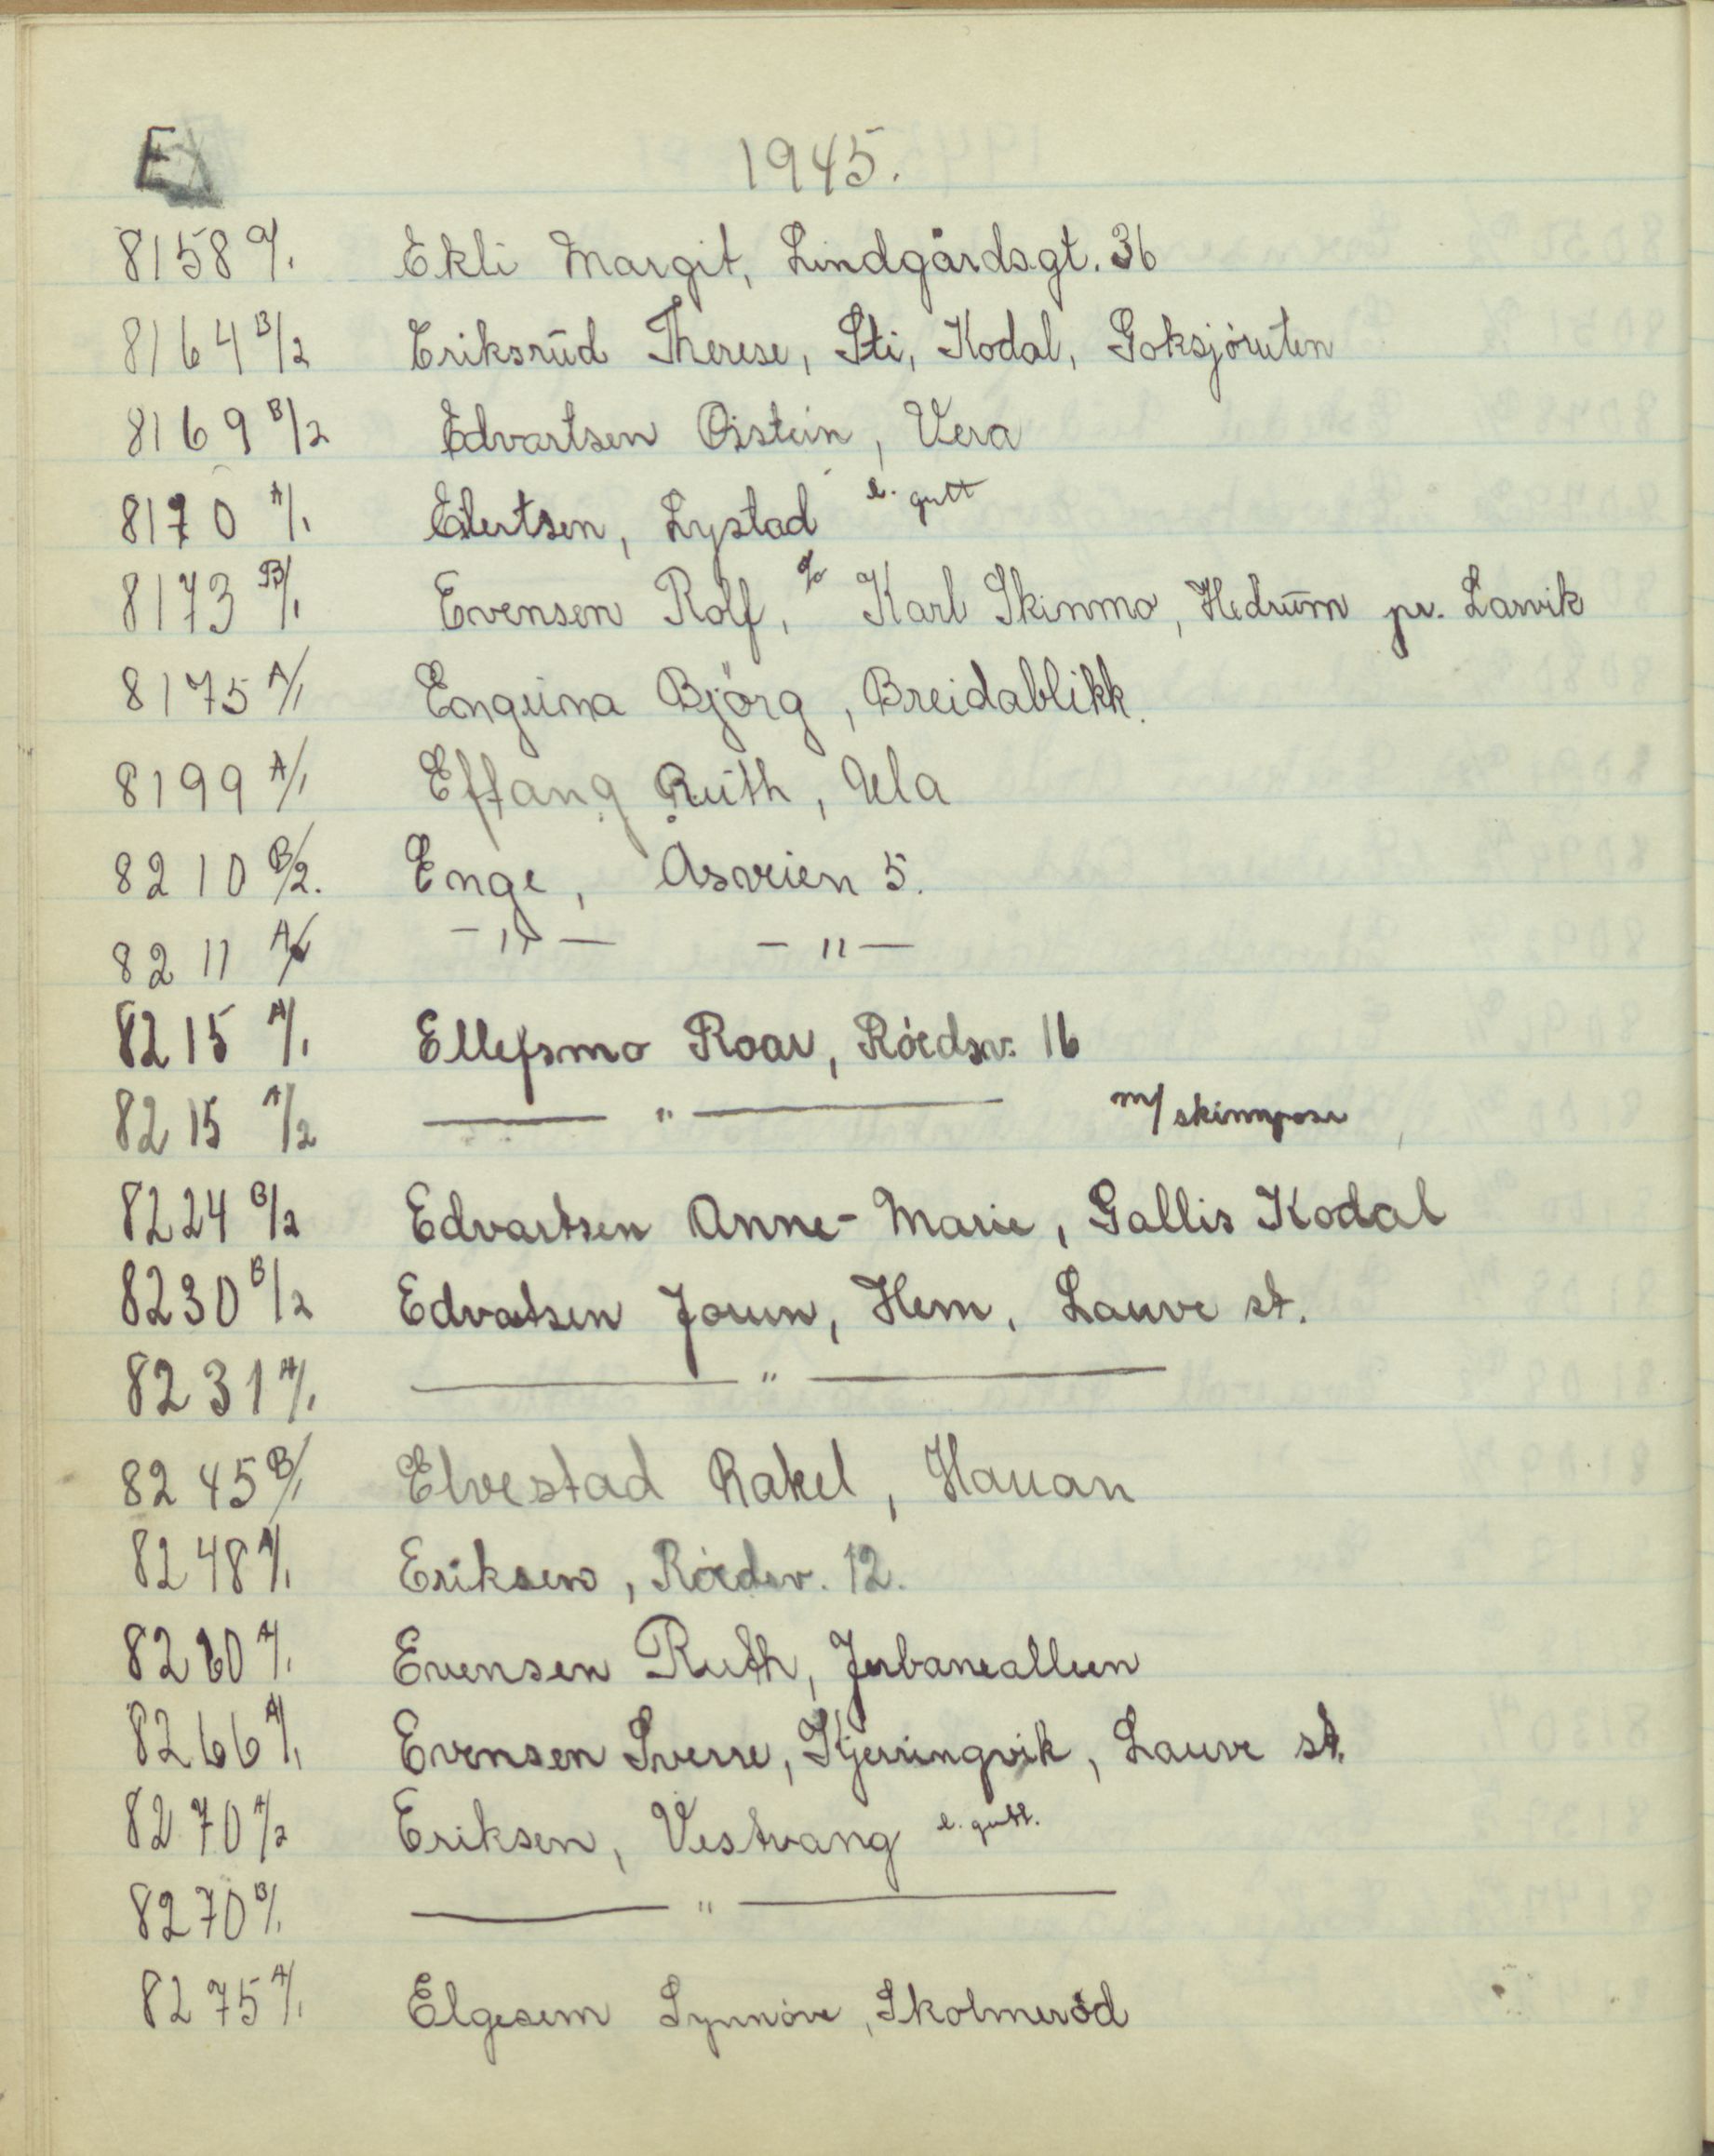 E 1945.
8158 a/1. Ekli Margit, Lindgårdsgt. 36
8164 B/2 Eriksrud Therese, Sti, Kodal, Goksjøruten
8169 B/2 Edvartsen Øistein, Vera
8170 A/1 Eilertsen, Lystad l. gutt
8173 B/1 Evensen Rolf, c/o Karl Skinmo, Hedrum pr. Larvik
8175 A/1 Björg, Breidablikk.
8199 A/1 Eftang Ruth, Ula
8210 B/2. Enge, Åsveien 5.
8211 A/ -"- -"-
8215 A/1. Ellefsmo Roar, Röedsv. 16
8215 A/2 — " — m/ skinnpose
8224 B/2 Edvartsen Anne-Marie, Gallis Kodal
8230 B/2 Edvatsen Jorun, Hem, Lauve st.
8231 A/1. — " —
8245 B/1 Elvestad Rakel, Hauan
8248 A/1. Eriksen, Röedsv. 12.
8260 A/1. Evensen Ruth, Jerbanealleen
8266 A/1. Evensen Sverre, Kjerringvik, Lauve st.
8270 A/2 Eriksen, Vestvang l. gutt.
8270 B/1. — " —
8275 A/1. Elgesem Synnöve, Skolmeröd